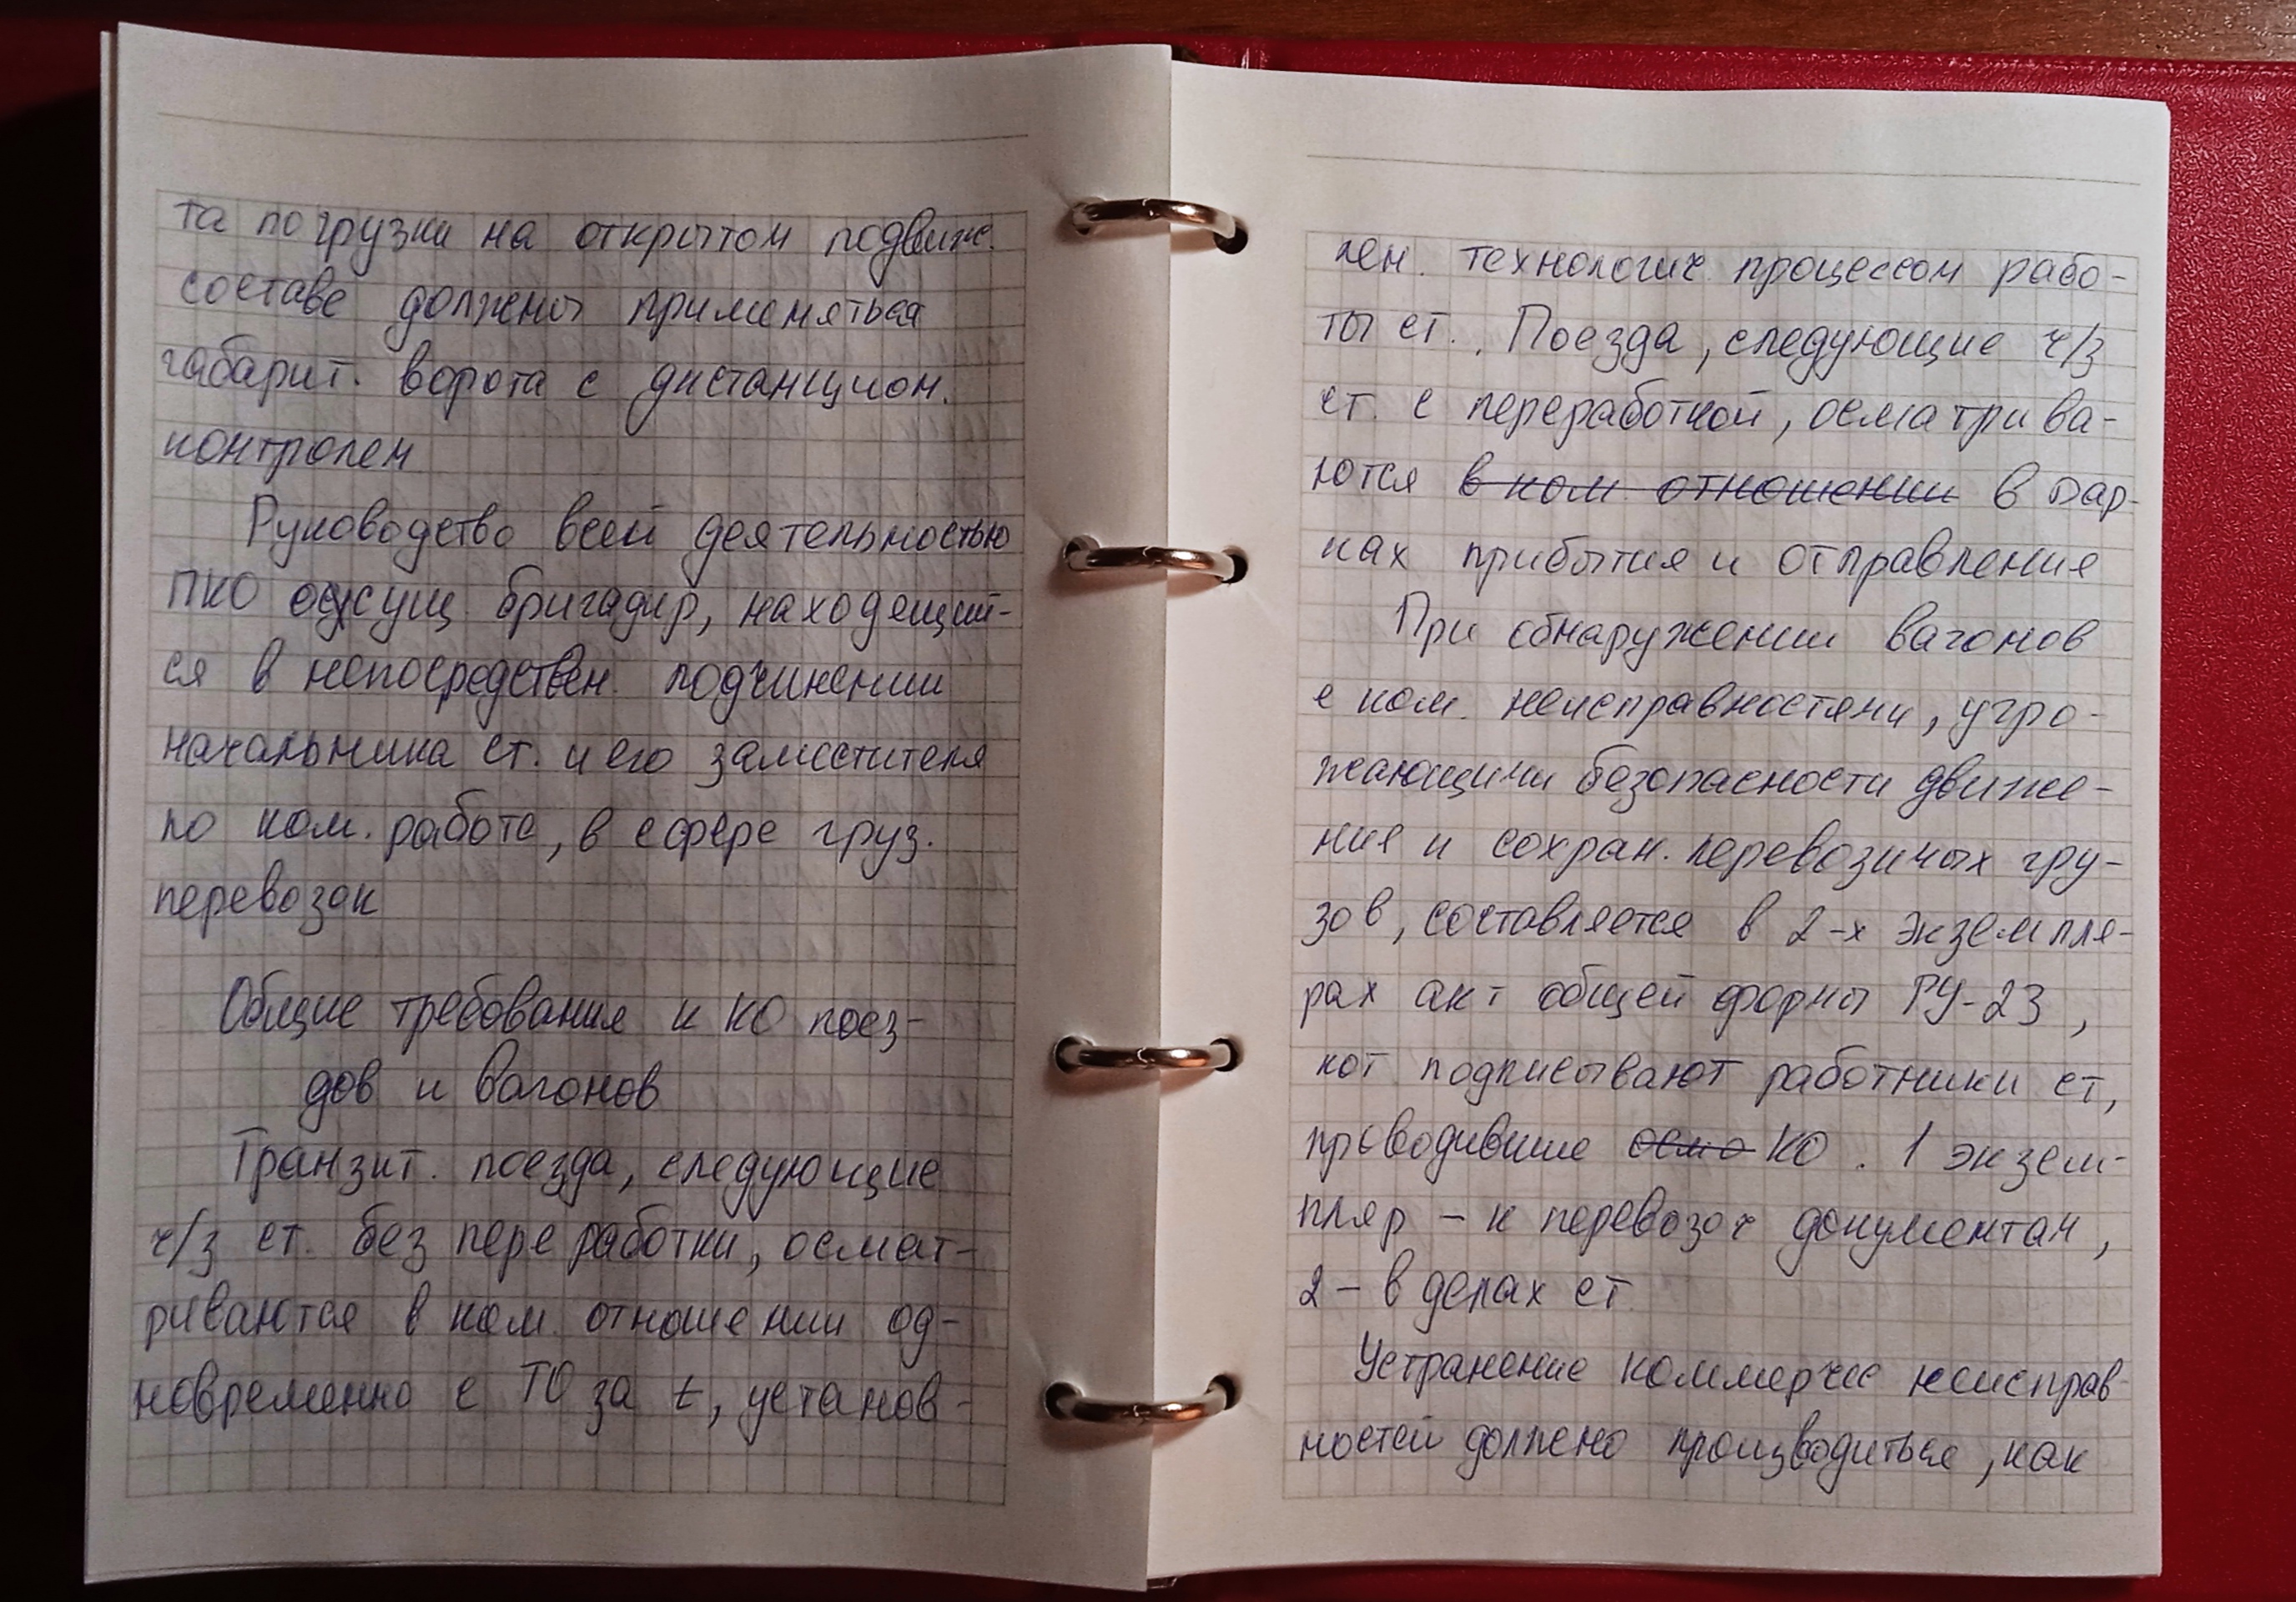 та погрузки на открытом подвиж.
составе должны применяться
габарит. ворота с дистанцион.
контролем
Руководство всей деятельностью
ПКО осущ бригадир, находящий-
ся в непосредствен. подчинении
начальника ст. и его заместителя
по ком. работе, в сфере груз.
перевозок
Общие требования к КО поез-
дов и вагонов
Транзит. поезда, следующие
ч/з ст. без переработки, осмат-
риваются в ком. отношении од-
новременно с ТО за t, установ-
лен. технологич. процессом рабо-
ты ст. . Поезда, следующие ч/з
ст. с переработкой, осматрива-
ются в ком. отношении в пар-
ках прибытия и отправления
При обнаружении вагонов
с ком. неисправностями, угро-
жающими безопасности движе-
ния и сохран. перевозимых гру-
зов, составляется в 2-х экземпля-
рах акт общей формы ГУ-23,
кот подписывают работники ст,
проводившие осмо КО. 1 экзем-
пляр - к перевозоч документам,
2 - в делах ст
Устранение коммерчес неисправ-
ностей должно производиться, как